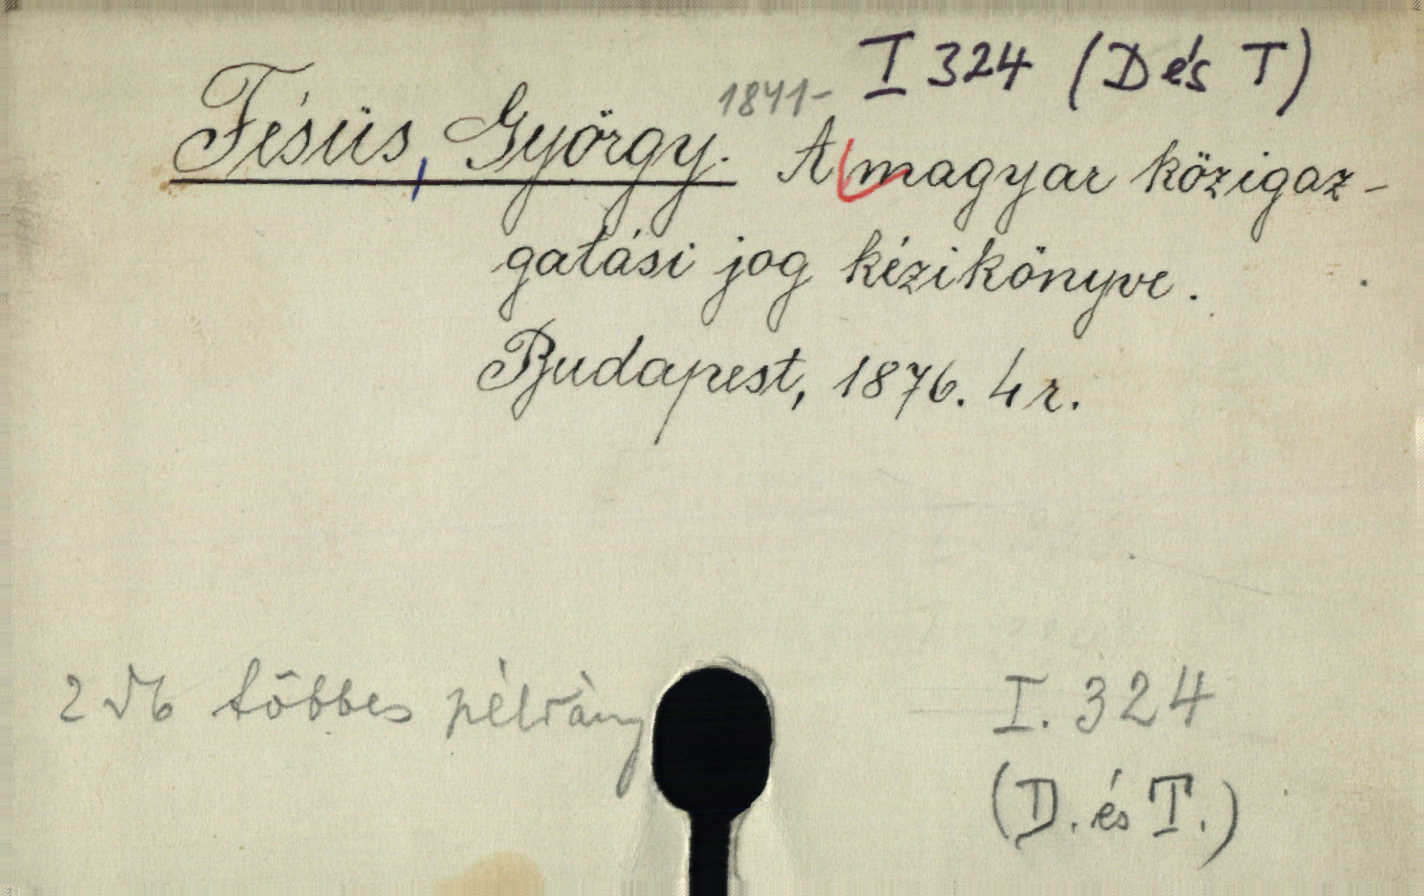 I 324 (D és T)
Fésüs, György. 1841- A magyar közigaz-
gatási jog kézikönyve.
Budapest, 1876. 4 r.
2 db többes példány
I. 324
(D. és T.)